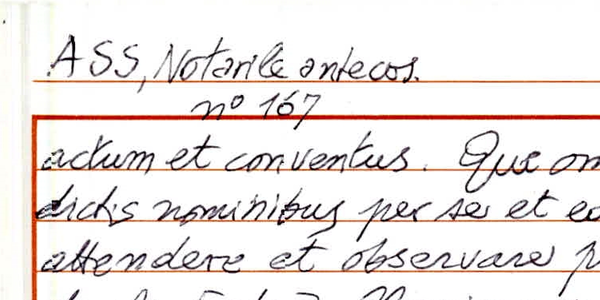 ASS, Notarile antecos.
nº 167
actum et conventus. Que om
dictis nominibus per se et eo
attendere et observare p